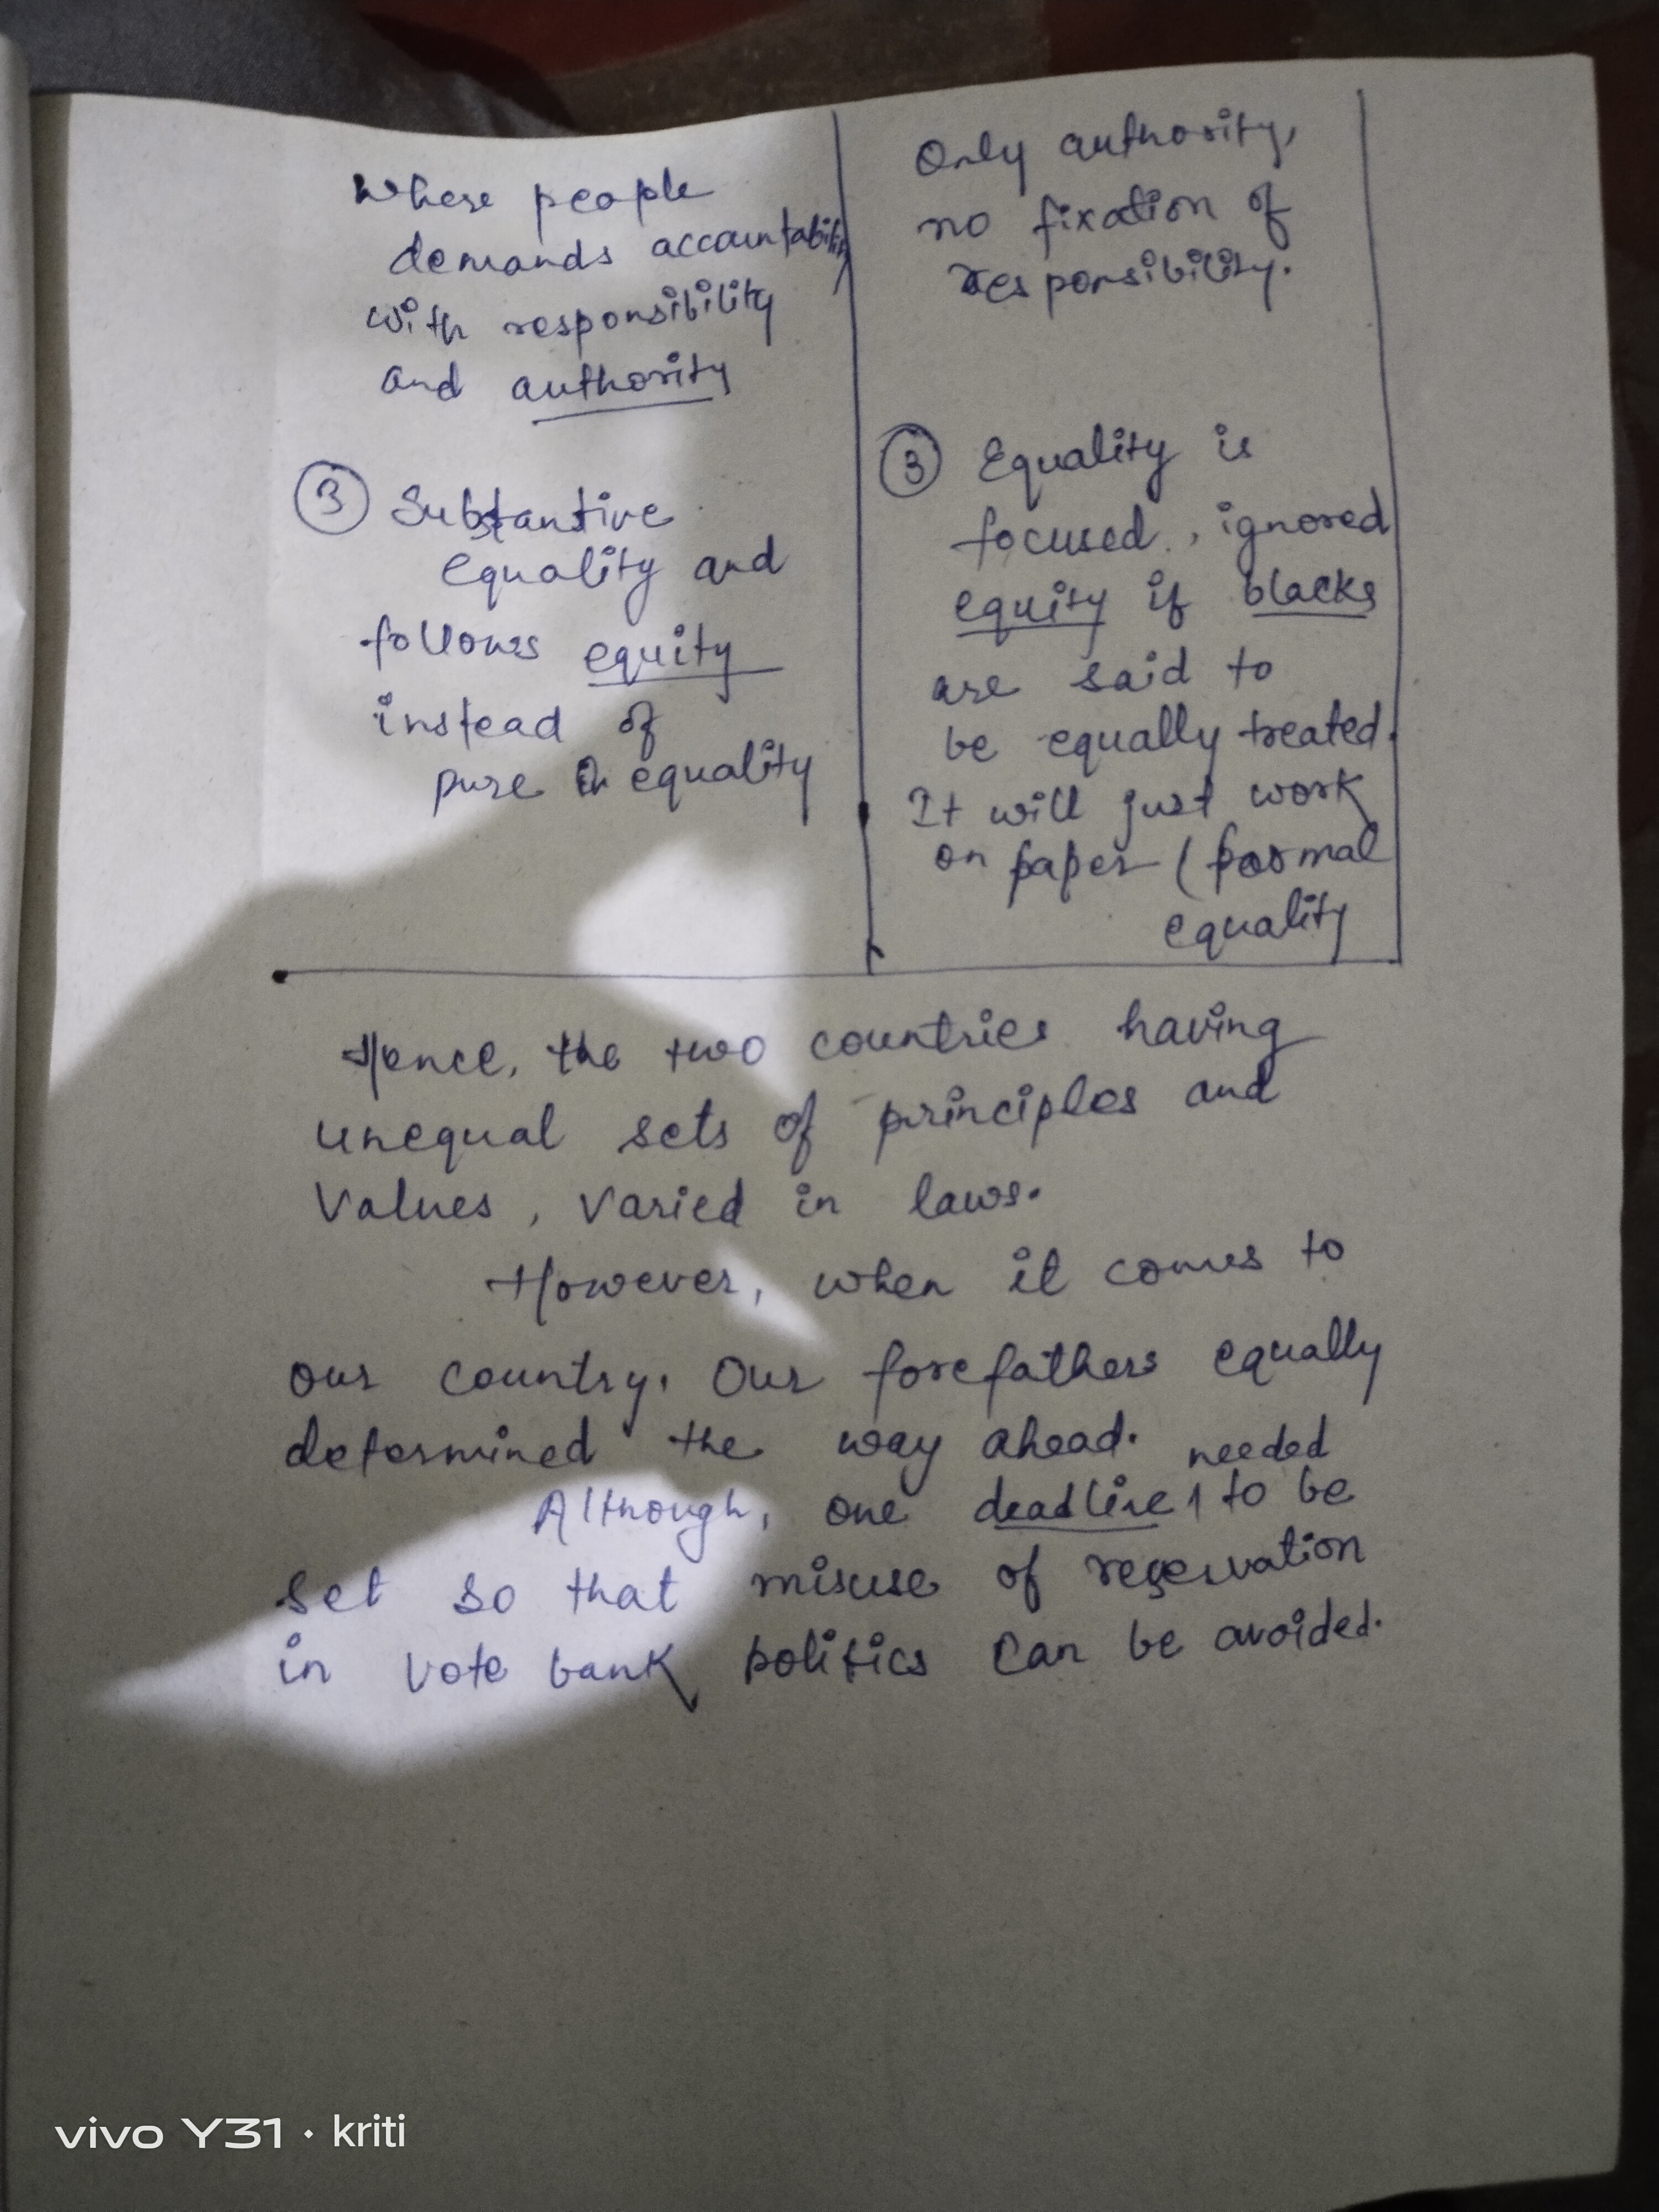 Where people
demands accountability
with responsibility
and authority
3 Substantive
equality and
follows equity
instead of
pure equality
Only authority,
no fixation of
responsibility.
3 Equality is
focused, ignored
equity if blacks
are said to
be equally treated.
It will just work
on paper (formal
equality
Hence, the two countries having
unequal sets of principles and
Values, varied in laws.
However, when it comes to
our country. Our forefathers equally
determined the way ahead.
needed
Although, one deadline to be
set so that misuse of reservation
in vote bank politics can be avoided.
vivo Y31 · kriti